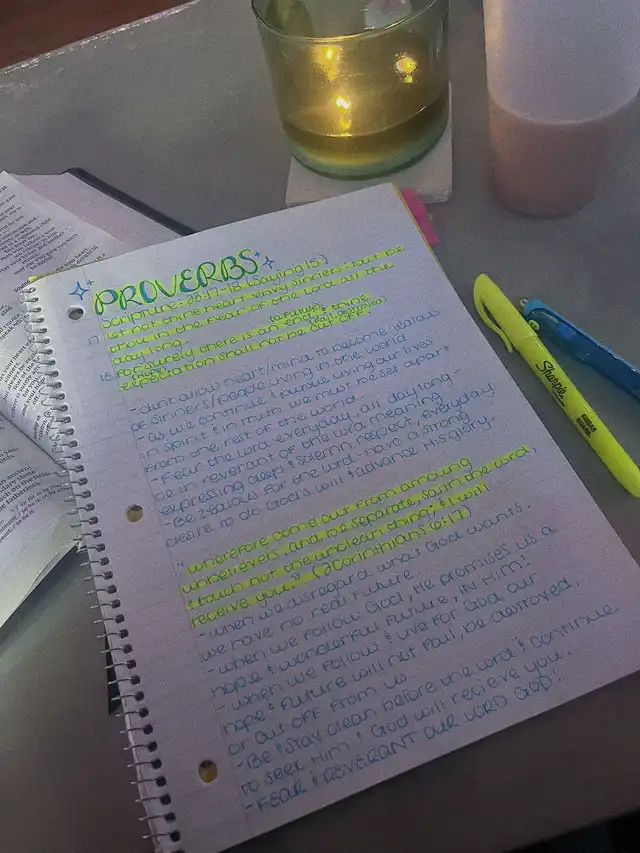 PROVERBS
Scripture: 23:17-18 (Saying 15)
17 Let not thine heart envy sinners: but be
thou in the fear of the Lord all the
day long.
(a future)
18 For surely there is an end; & thine
(hope) (will destroyed)
expectation shall not be cut off.
- don't allow heart/mind to become jealous
of sinners/people living in the world
- As we continue & pursue living our lives
in spirit & in truth we must be set apart
from the rest of the world.
- Fear the Lord everyday, all day long -
be in reverant of the Lord meaning
expressing deep & solemn respect, everyday.
- Be zealous for the Lord - have a strong
desire to do God's will & advance His glory.
"Wherefore come out from among
unbelievers, and be separate, saith the Lord,
& touch not the unclean thing; & I will
receive you." (2 Corinthians 6:17)
- When we disregard what God wants,
we have no real future.
- When we follow God, He promises us a
hope & wonderful future, IN HIM!
- When we follow & live for God our
hope & future will not fail, be destroyed,
or cut off from us.
- Be & stay clean before the Lord & continue
to seek Him & God will recieve you.
- FEAR & REVERANT OUR LORD GOD!
Sharpie